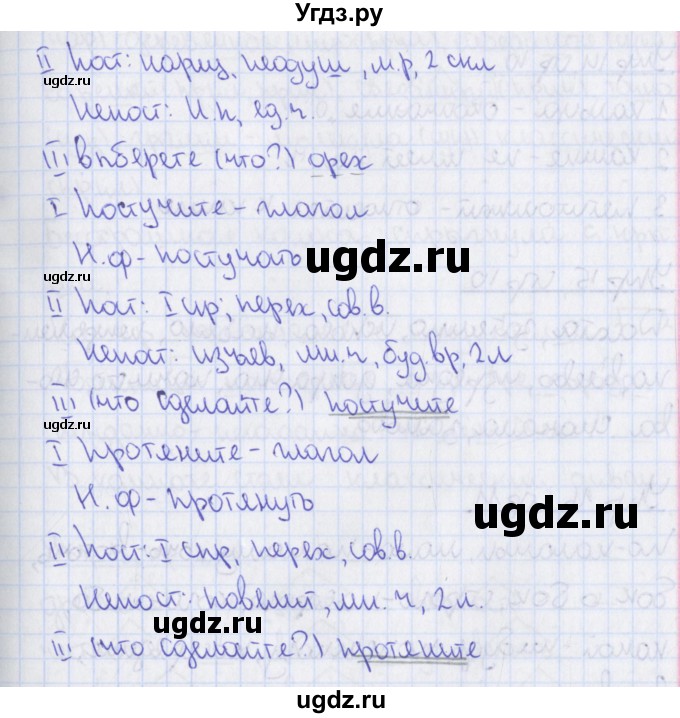 Угдз.ру
II Пост: нариц, неодуш, м.р, 2 скл
ugdz.ru
Непост: И.п, ед.ч.
III выберете (что?) орех
ugdz.ru
I Постучите - глагол
Н.ф - постучать
ugdz.ru
ugdz.ru
II Пост: I спр, перех, сов.в.
Непост: изъяв, мн.ч, буд.вр, 2л
ugdz.ru
III (что сделайте?) постучите
I Протяните - глагол
Н.ф - протянуть
ugdz.ru
ugdz.ru
II Пост: I спр, перех, сов.в.
Непост: повелит, мн.ч, 2л.
ugdz.ru
ugdz.ru
III (что сделайте?) протяните
ugdz.ru